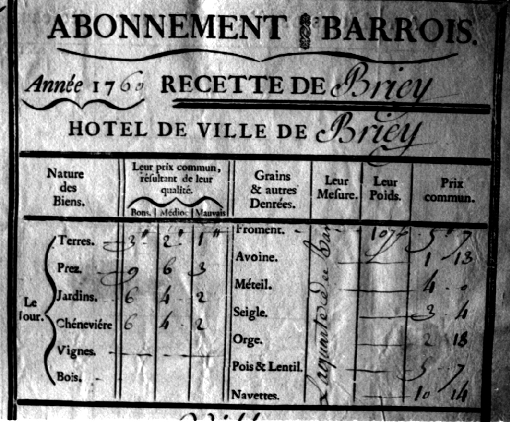 ABONNEMENT BARROIS.
Année 1760 RECETTE DE Briey
HOTEL DE VILLE DE Briey
Nature des Biens. | Leur prix commun, résultant de leur qualité. | Grains & autres Denrées. | Leur Mesure. | Leur Poids. | Prix commun.
Bons. | Médio. | Mauvais
Le Jour.
Terres. 3 " 2 " 1 "
Prez. 9 6 3
Jardins. 6 4 2
Chéneviére 6 4 2
Vignes.
Bois.
Froment. 107 5 7
Avoine. 1 13
Méteil. 4
Seigle. 3 4
Orge. 2 18
Pois & Lentil. 5 7
Navettes. 10 14